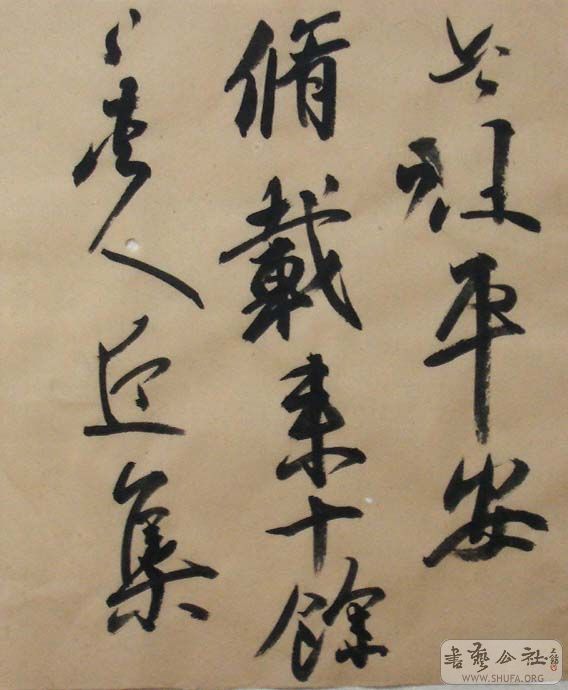 此粗平安
脩載来十餘
日諸人近集
書藝公社
WWW.SHUFA.ORG